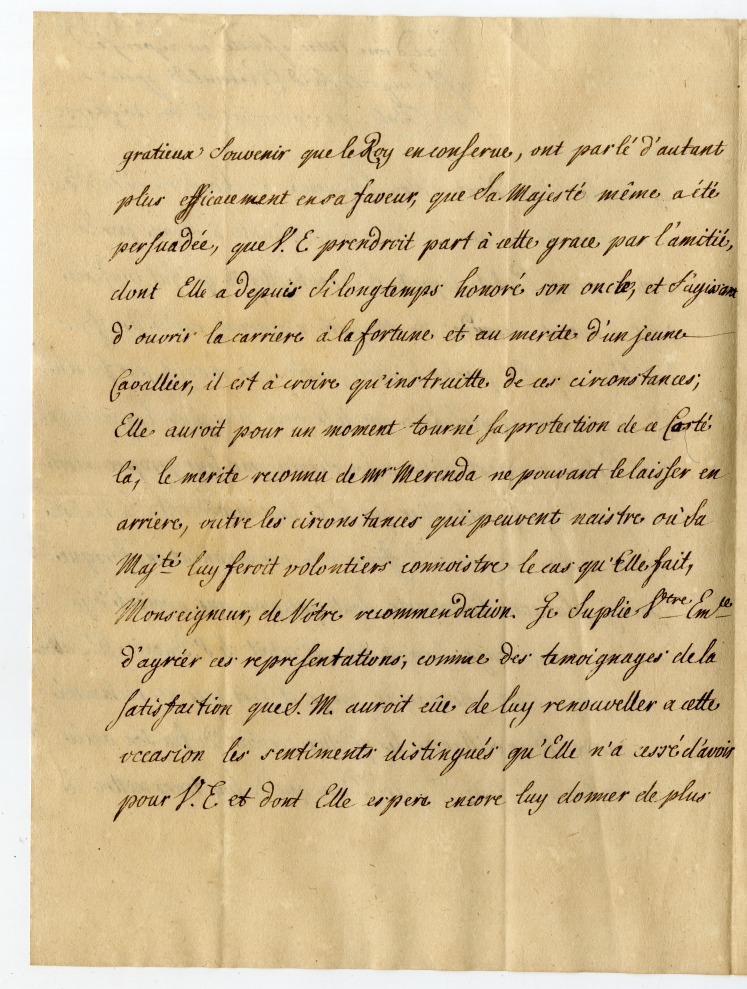 gratieux Souvenir que le Roy en conserve, ont parlé d'autant
plus efficacement en sa faveur, que Sa Majesté même a été
persuadée, que V. E. prendroit part à cette grace par l'amitié,
dont Elle a depuis Si longtemps honoré son oncle, et S'agissant
d'ouvrir la carriere à la fortune et au merite d'un jeune
Cavallier, il est à croire qu'instruitte de ces circonstances;
Elle auroit pour un moment tourné sa protection de ce Corté
là, le merite reconnu de Mr Merenda ne pouvant le laisser en
arriere, outre les circonstances qui peuvent naistre où Sa
Majté luy feroit volontiers connoistre le cas qu'Elle fait,
Monseigneur, de Vôtre recommendation. Je Suplie Vtre Emce
d'agréer ces representations, comme des temoignages de la
satisfaction que S. M. auroit eûe de luy renouveller a cette
occasion les sentiments distingués qu'Elle n'a cessé d'avoir
pour V. E. et dont Elle espere encore luy donner de plus